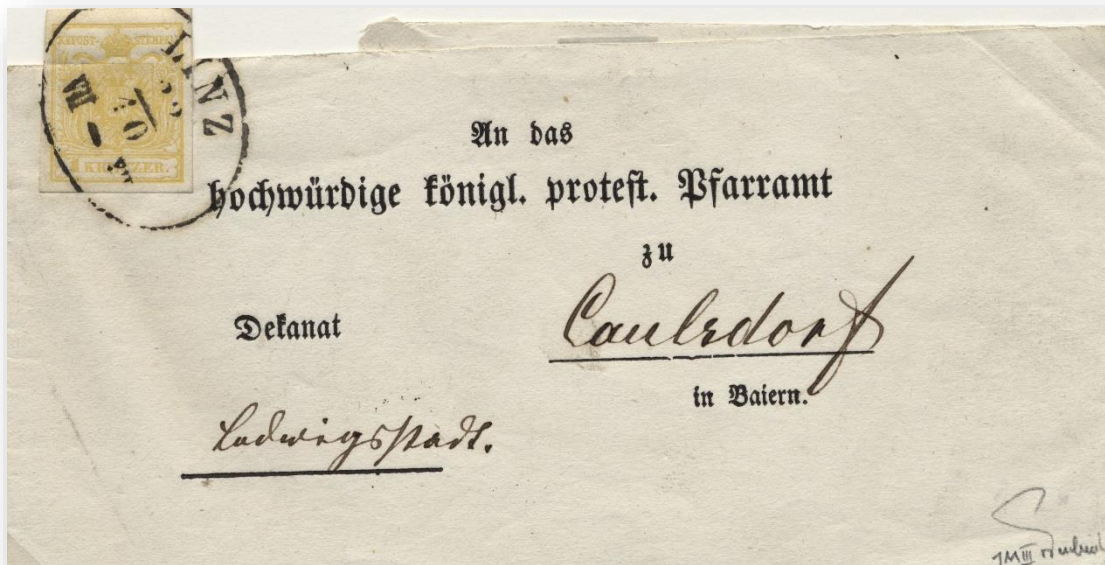 LINZ
KREUZER.
An das
hochwürdige königl. protest. Pfarramt
zu
Dekanat
Caulsdorf
in Baiern.
Ludwigsstadt.
1M III